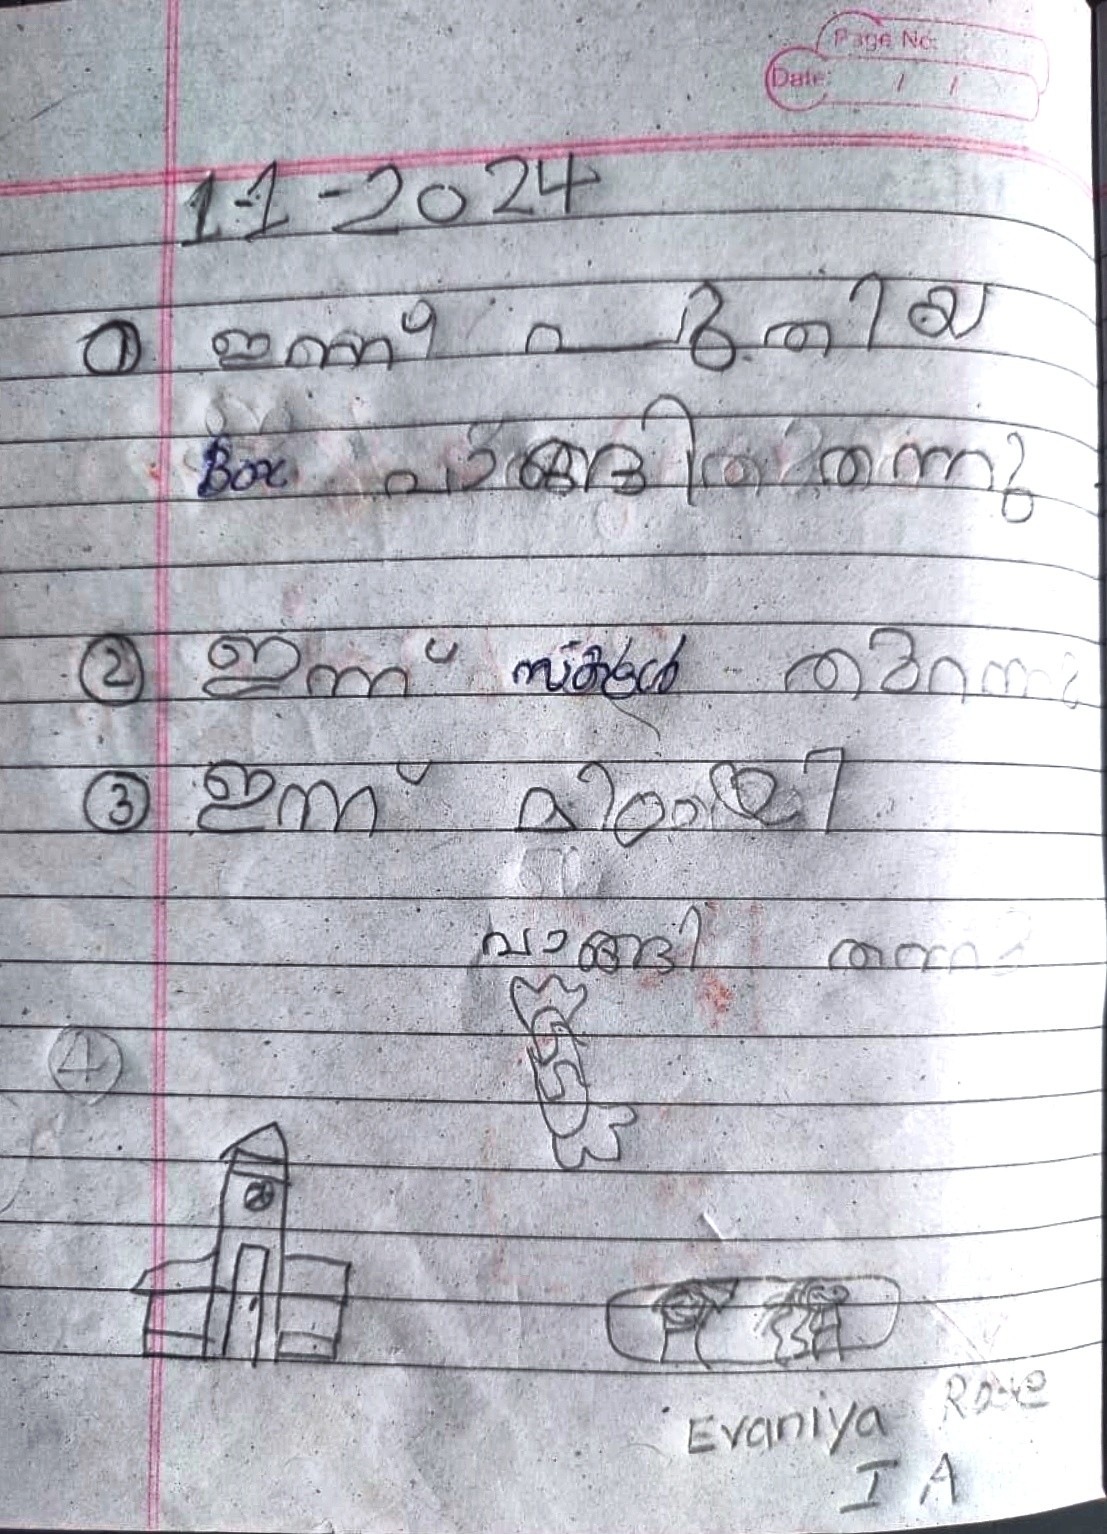 Page No:
Date: / /
1-1-2024
① ഇന്ന് പുതിയ
Box വാങ്ങി തന്നു
② ഇന്ന് സ്കൂൾ തുറന്നു
③ ഇന്ന് മിഠായി
വാങ്ങി തന്നു
④
Evaniya Rose
I A